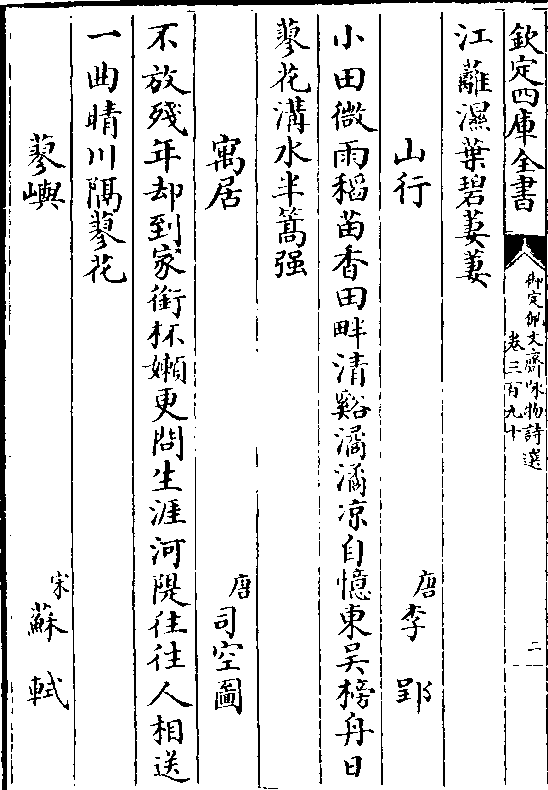 欽定四庫全書
御定佩文齋咏物詩選
卷三百九十
二
江蘺濕葉碧萋萋
山行
唐李郢
小田微雨稻苗香田畔清谿潏潏凉自憶東吳榜舟日
蓼花溝水半篙强
寓居
唐司空圖
不放殘年却到家銜杯嬾更問生涯河隄往往人相送
一曲晴川隔蓼花
蓼嶼
宋蘇軾